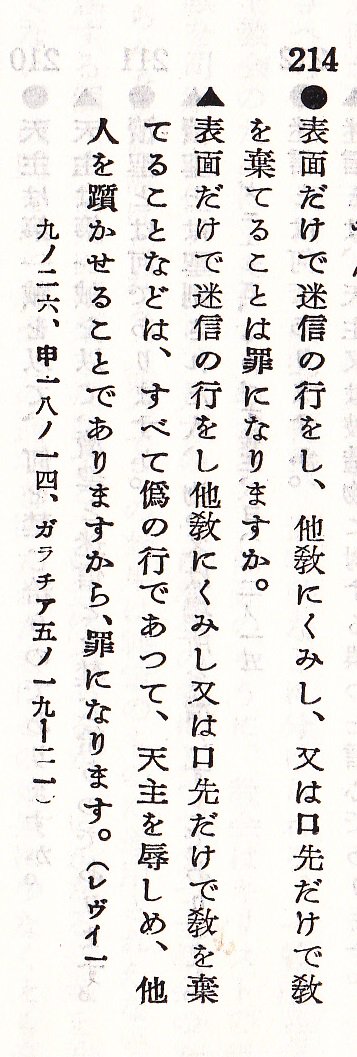 214
●表面だけで迷信の行をし、他敎にくみし、又は口先だけで敎
を棄てることは罪になりますか。
▲表面だけで迷信の行をし他敎にくみし又は口先だけで敎を棄
てることなどは、すべて僞の行であつて、天主を辱しめ、他
人を躓かせることでありますから、罪になります。（レヴイ一
九ノ二六、申一八ノ一四、ガラチア五ノ一九ー二一）